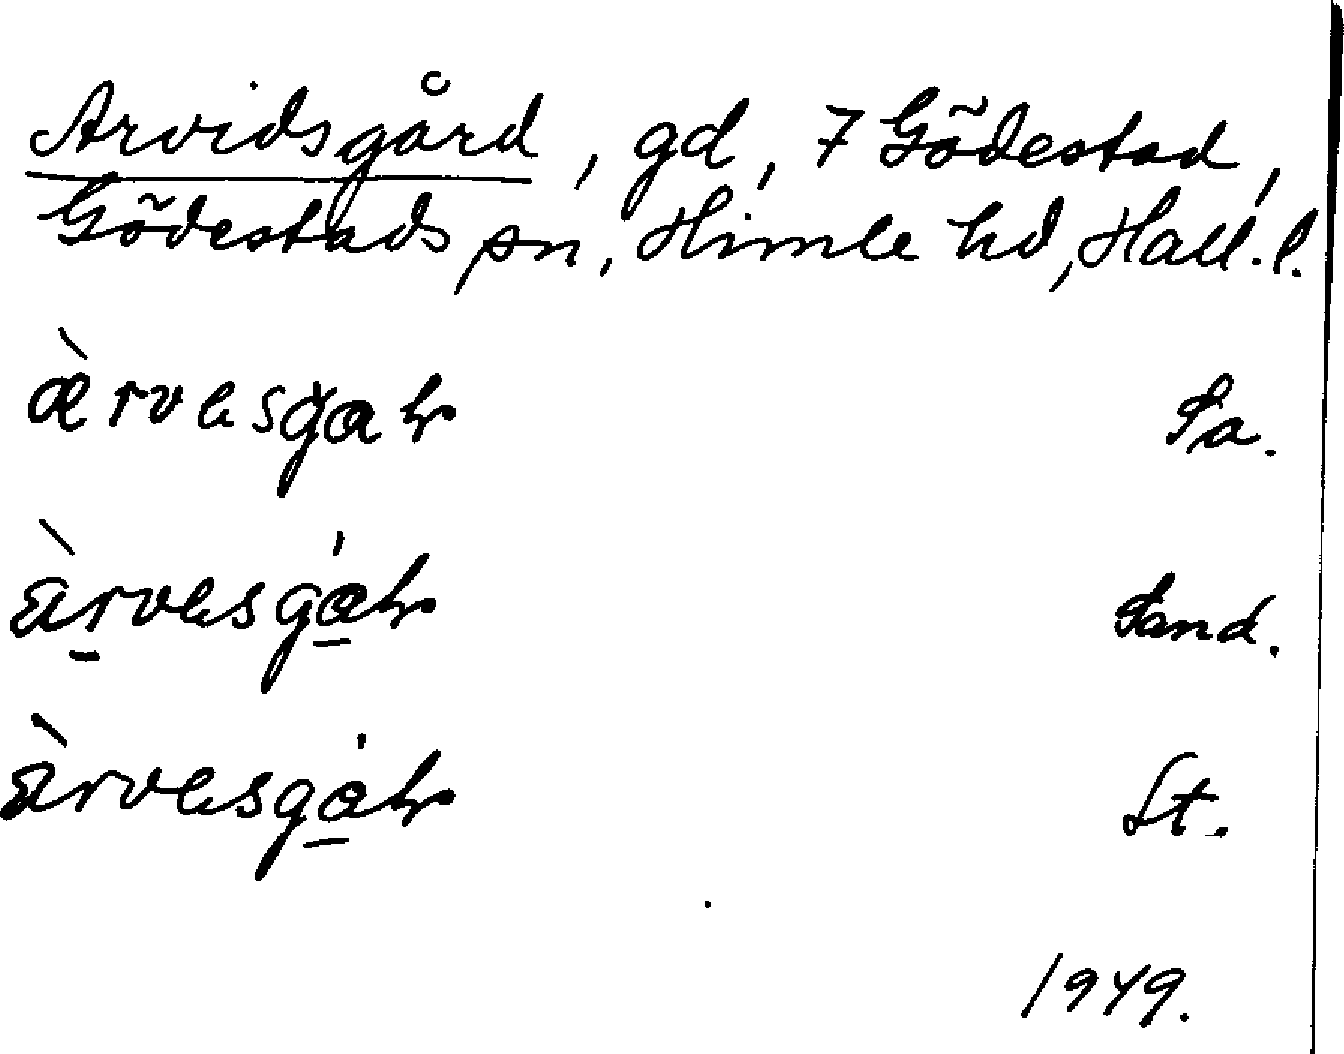 Arvidsgård, gd, 7 Gödestad,
Gödestads sn, Himle hd, Hall. l.
æ̀rvesgar Sa.
æ̀rvesgár Sand.
æ̀rvesgár St.
1949.